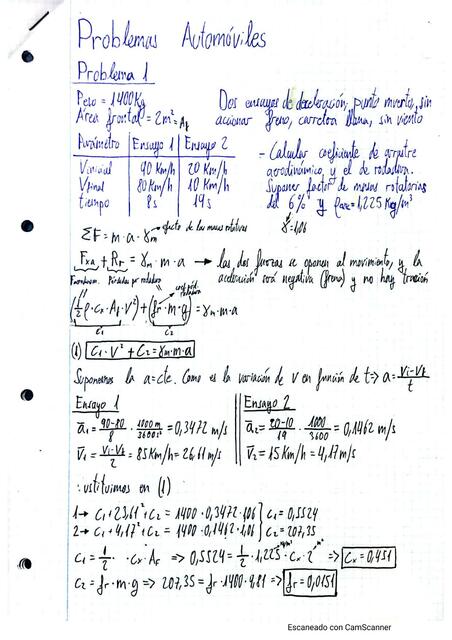 Problemas Automóviles
Problema 1
Peso = 1400Kg
Área frontal = 2m² = A_f
Dos ensayos de deceleración, punto muerto, sin
accionar freno, carretera llana, sin viento
Parámetro | Ensayo 1 | Ensayo 2
Vinicial | 90 Km/h | 20 Km/h
Vfinal | 80 Km/h | 10 Km/h
tiempo | 8s | 19s
- Calcular coeficiente de arrastre
aerodinámico y el de rodadura.
Suponer factor de masas rotatorias
del 6% y ρaire = 1,225 Kg/m³
γ = 1,06
ΣF = m·a·γm → efecto de las masas rotativas
Fxa + Rr = γm·m·a → las dos fuerzas se oponen al movimiento, y la
aceleración será negativa (frena) y no hay tracción
(½ ρ·Cx·Af·V²) + (fr·m·g) = γm·m·a
C1 C2
(1) C1·V² + C2 = γm·m·a
Suponemos la a=cte. Como es la variación de v en función de t => a = (Vi-Vf)/t
Ensayo 1
Ensayo 2
a1 = (90-80)/8 · 1000m/3600s = 0,3472 m/s
a2 = (20-10)/19 · 1000/3600 = 0,1462 m/s
V1 = (Vi-Vf)/2 = 85 Km/h = 26,61 m/s
V2 = 15 Km/h = 4,17 m/s
ustituimos en (1)
1 → C1 + 23,61² + C2 = 1400·0,3472·1,06 } C1 = 0,5524
2 → C1 + 4,17² + C2 = 1400·0,1462·1,06 } C2 = 207,35
C1 = ½ · Cx·Af => 0,5524 = ½·1,225·Cx·2 => Cx = 0,451
C2 = fr·m·g => 207,35 = fr·1400·9,81 => fr = 0,0151
Escaneado con CamScanner